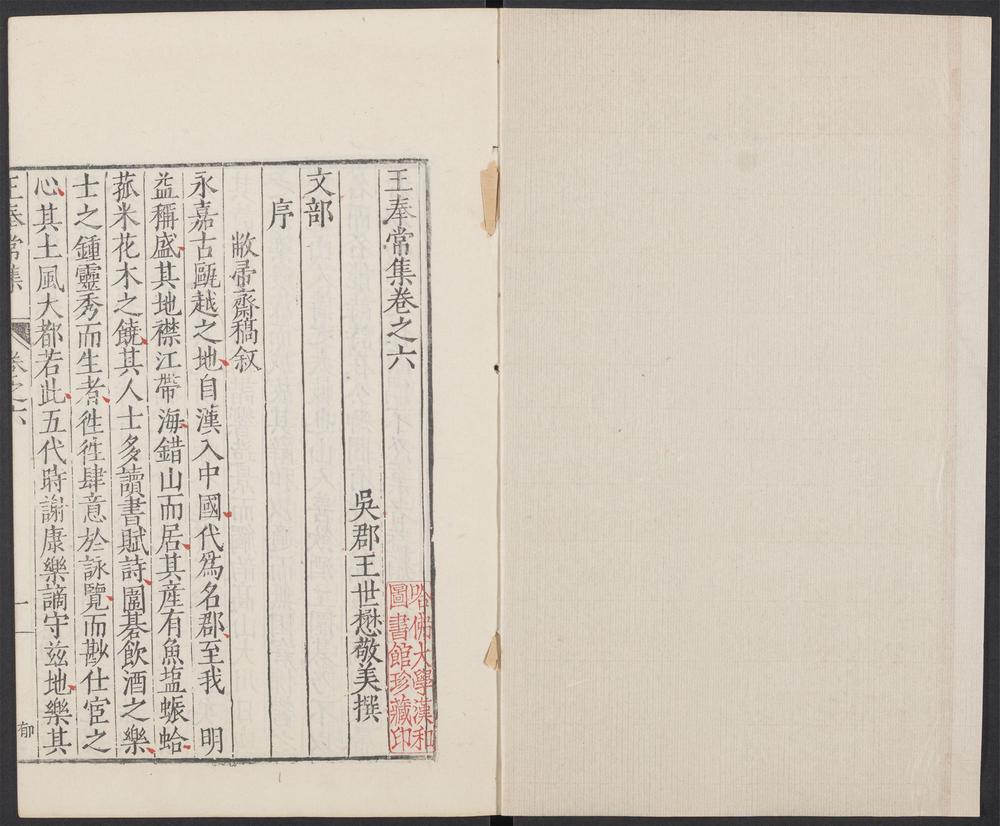 王奉常集卷之六
吳郡王世懋敬美撰
文部
序
敝帚齋稿叙
永嘉古甌越之地自漢入中國代爲名郡至我　明
益稱盛其地襟江帶海錯山而居其產有魚塩蜄蛤
菰米花木之饒其人士多讀書賦詩圍碁飲酒之樂
士之鍾靈秀而生者徃徃肆意於詠覽而尠仕宦之
心其土風大都若此五代時謝康樂謫守兹地樂其
王奉常集
卷之六
一
郁
哈佛大學漢和
圖書館珍藏印